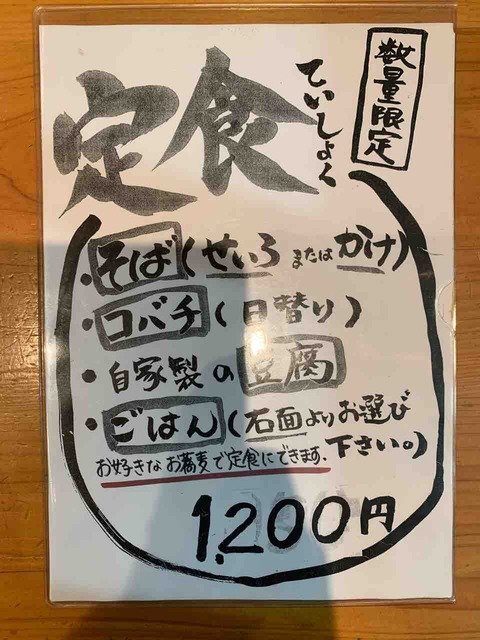 数量限定
定食
ていしょく
・そば(せいろまたはかけ)
・コバチ(日替り)
・自家製の豆腐
・ごはん(右面よりお選び下さい。)
お好きなお蕎麦で定食にできます.
1,200円